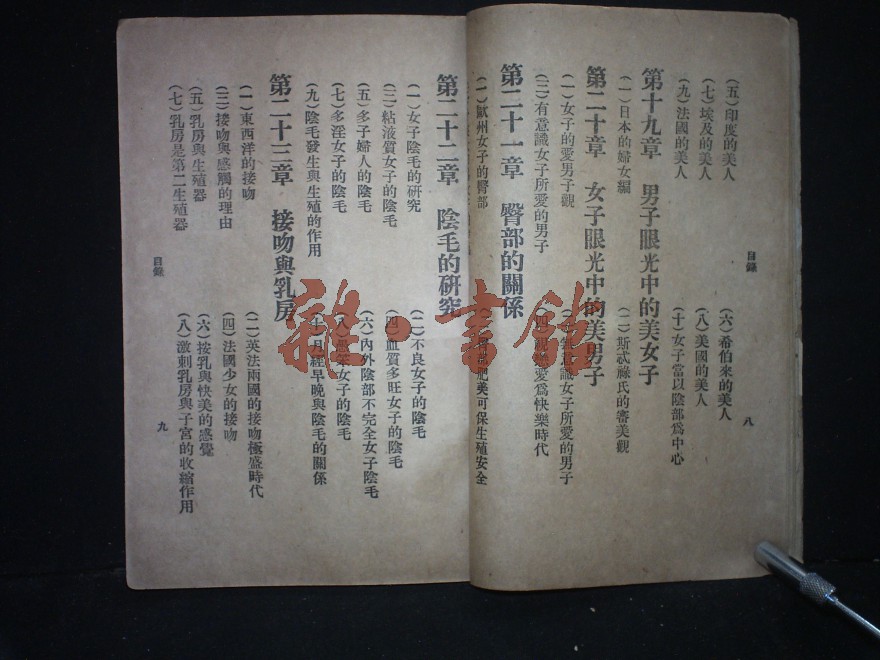 目錄
八
(五)印度的美人
(六)希伯來的美人
(七)埃及的美人
(八)美國的美人
(九)法國的美人
(十)女子當以陰部爲中心
第十九章 男子眼光中的美女子
(一)日本的婦女編
(二)斯忒祿氏的審美觀
第二十章 女子眼光中的美男子
(一)女子的愛男子觀
意識女子所愛的男子
(三)有意識女子所愛的男子
愛爲快樂時代
第二十一章 臀部的關係
(一)歐州女子的臀部
肥美可保生殖安全
第二十二章 陰毛的研究
(一)女子陰毛的研究
(二)不良女子的陰毛
(三)粘液質女子的陰毛
(四)血質多旺女子的陰毛
(五)多子婦人的陰毛
(六)內外陰部不完全女子陰毛
(七)多淫女子的陰毛
(八)女子的陰毛
(九)陰毛發生與生殖的作用
(十)月經早晚與陰毛的關係
第二十三章 接吻與乳房
(一)東西洋的接吻
(二)英法兩國的接吻極盛時代
(三)接吻與感觸的理由
(四)法國少女的接吻
(五)乳房與生殖器
(六)按乳與快美的感覺
(七)乳房是第二生殖器
(八)激刺乳房與子宮的收縮作用
目錄
九
雜·書館